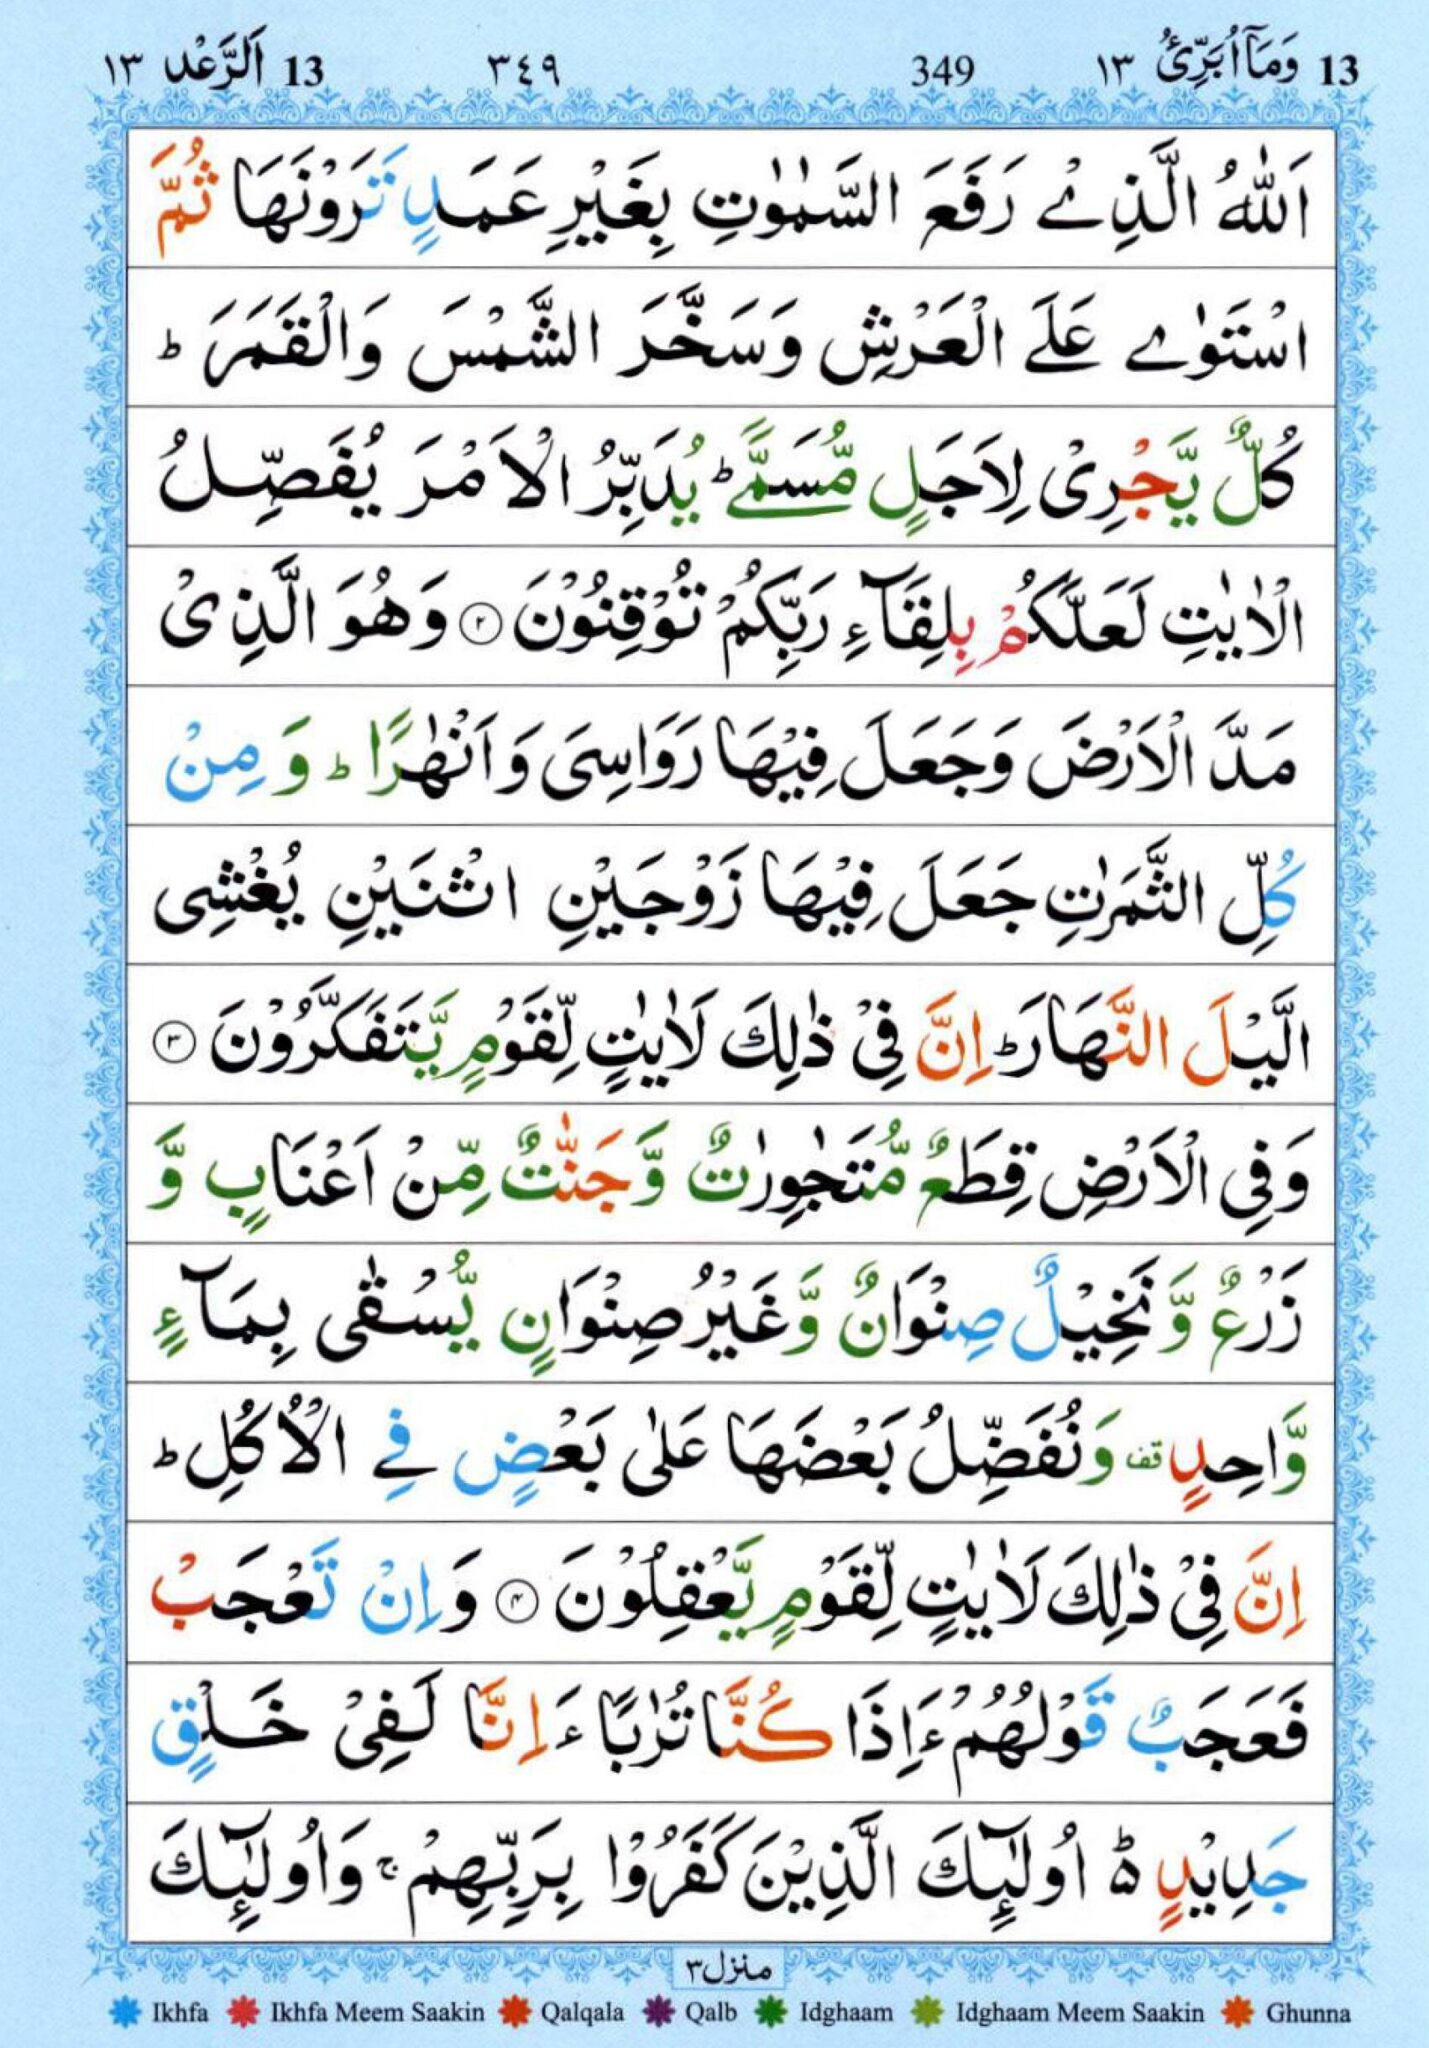 13 وَمَآ اُبَرِّئُ ١٣ 349 ٣٤٩ 13 اَلرَّعْد ١٣
اَللّٰهُ الَّذِیْ رَفَعَ السَّمٰوٰتِ بِغَیْرِ عَمَدٍ تَرَوْنَهَا ثُمَّ
اسْتَوٰی عَلَی الْعَرْشِ وَسَخَّرَ الشَّمْسَ وَالْقَمَرَ ؕ
كُلٌّ یَّجْرِیْ لِاَجَلٍ مُّسَمًّی ؕ یُدَبِّرُ الْاَمْرَ یُفَصِّلُ
الْاٰیٰتِ لَعَلَّكُمْ بِلِقَآءِ رَبِّكُمْ تُوْقِنُوْنَ ۲ وَهُوَ الَّذِیْ
مَدَّ الْاَرْضَ وَجَعَلَ فِیْهَا رَوَاسِیَ وَاَنْهٰرًا ؕ وَمِنْ
كُلِّ الثَّمَرٰتِ جَعَلَ فِیْهَا زَوْجَیْنِ اثْنَیْنِ یُغْشِی
الَّیْلَ النَّهَارَ ؕ اِنَّ فِیْ ذٰلِكَ لَاٰیٰتٍ لِّقَوْمٍ یَّتَفَكَّرُوْنَ ۳
وَفِی الْاَرْضِ قِطَعٌ مُّتَجٰوِرٰتٌ وَّجَنّٰتٌ مِّنْ اَعْنَابٍ وَّ
زَرْعٌ وَّنَخِیْلٌ صِنْوَانٌ وَّغَیْرُ صِنْوَانٍ یُّسْقٰی بِمَآءٍ
وَّاحِدٍ قف وَنُفَضِّلُ بَعْضَهَا عَلٰی بَعْضٍ فِی الْاُكُلِ ؕ
اِنَّ فِیْ ذٰلِكَ لَاٰیٰتٍ لِّقَوْمٍ یَّعْقِلُوْنَ ۴ وَاِنْ تَعْجَبْ
فَعَجَبٌ قَوْلُهُمْ ءَاِذَا كُنَّا تُرٰبًا ءَاِنَّا لَفِیْ خَلْقٍ
جَدِیْدٍ ۬ؕ اُولٰٓئِكَ الَّذِیْنَ كَفَرُوْا بِرَبِّهِمْ ۚ وَاُولٰٓئِكَ
منزل ٣
Ikhfa Ikhfa Meem Saakin Qalqala Qalb Idghaam Idghaam Meem Saakin Ghunna